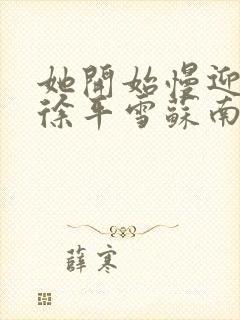 她開始慢迎
徐平雪蘇南
薛寒